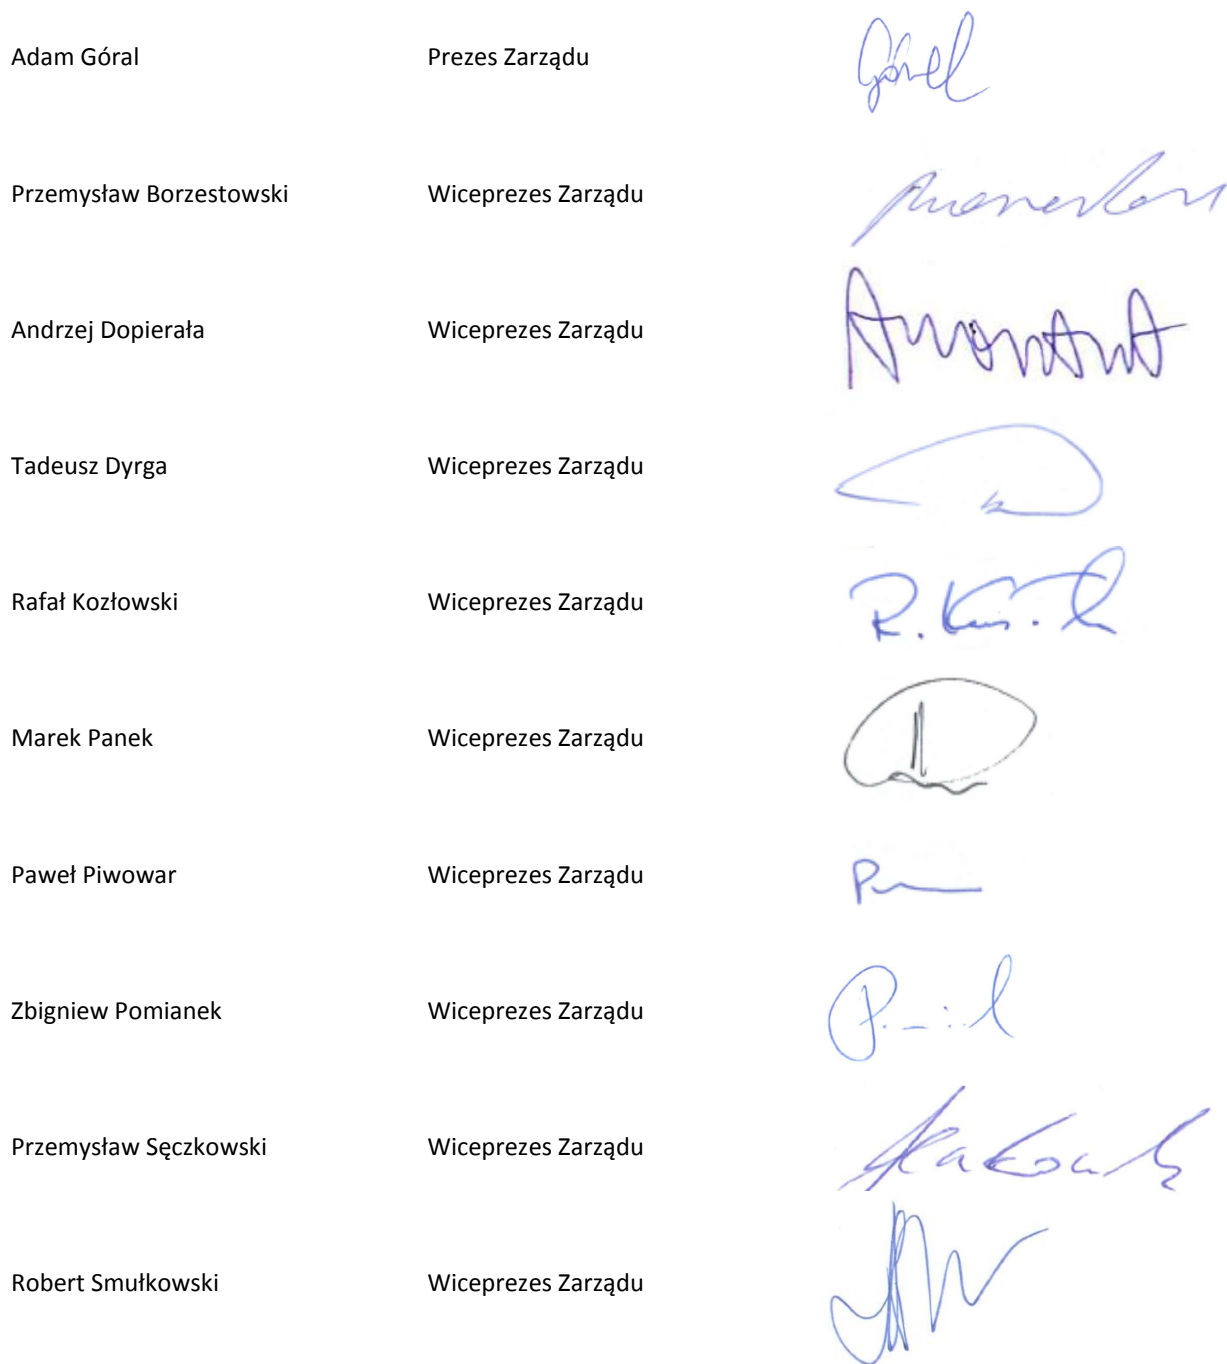 Adam Góral Prezes Zarządu Góral
Przemysław Borzestowski Wiceprezes Zarządu
Andrzej Dopierała Wiceprezes Zarządu
Tadeusz Dyrga Wiceprezes Zarządu
Rafał Kozłowski Wiceprezes Zarządu
Marek Panek Wiceprezes Zarządu
Paweł Piwowar Wiceprezes Zarządu
Zbigniew Pomianek Wiceprezes Zarządu
Przemysław Sęczkowski Wiceprezes Zarządu
Robert Smułkowski Wiceprezes Zarządu